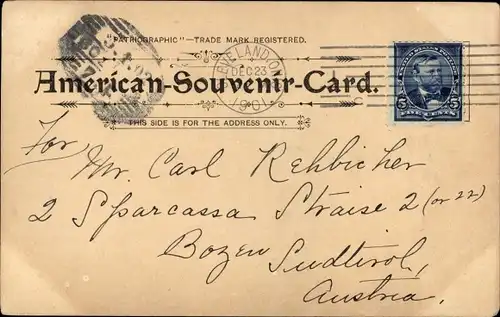 "PATRIOGRAPHIC"—TRADE MARK REGISTERED.
DEC 23
American-Souvenir-Card.
THIS SIDE IS FOR THE ADDRESS ONLY.
5 5
For
Mr. Carl Rehbicher
2 Sparcassa Straise 2 (or 22)
Bozen
Sudtirol,
Austria.